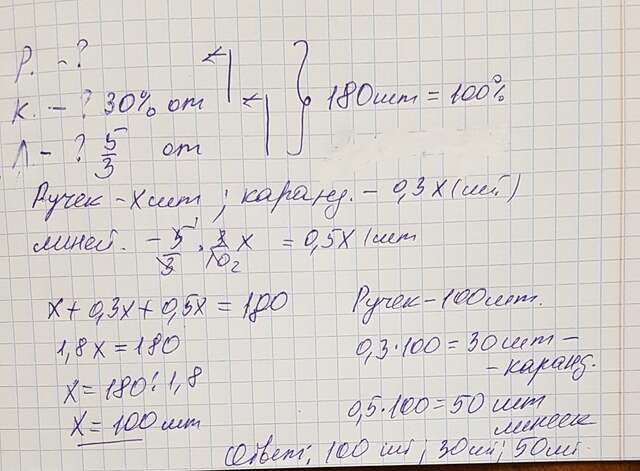 Р. - ?
К. - ? 30% от
Л - ? 5/3 от
} 180 шт = 100%
Ручек - х шт ; каранд. - 0,3 х (шт)
линей. - 5/3 · 3/10 х = 0,5х (шт
х + 0,3х + 0,5х = 180
1,8 х = 180
х = 180 : 1,8
х = 100 шт
Ручек - 100 шт.
0,3 · 100 = 30 шт -
- каранд.
0,5 · 100 = 50 шт
линеек
Ответ: 100 шт ; 30 шт ; 50 шт.